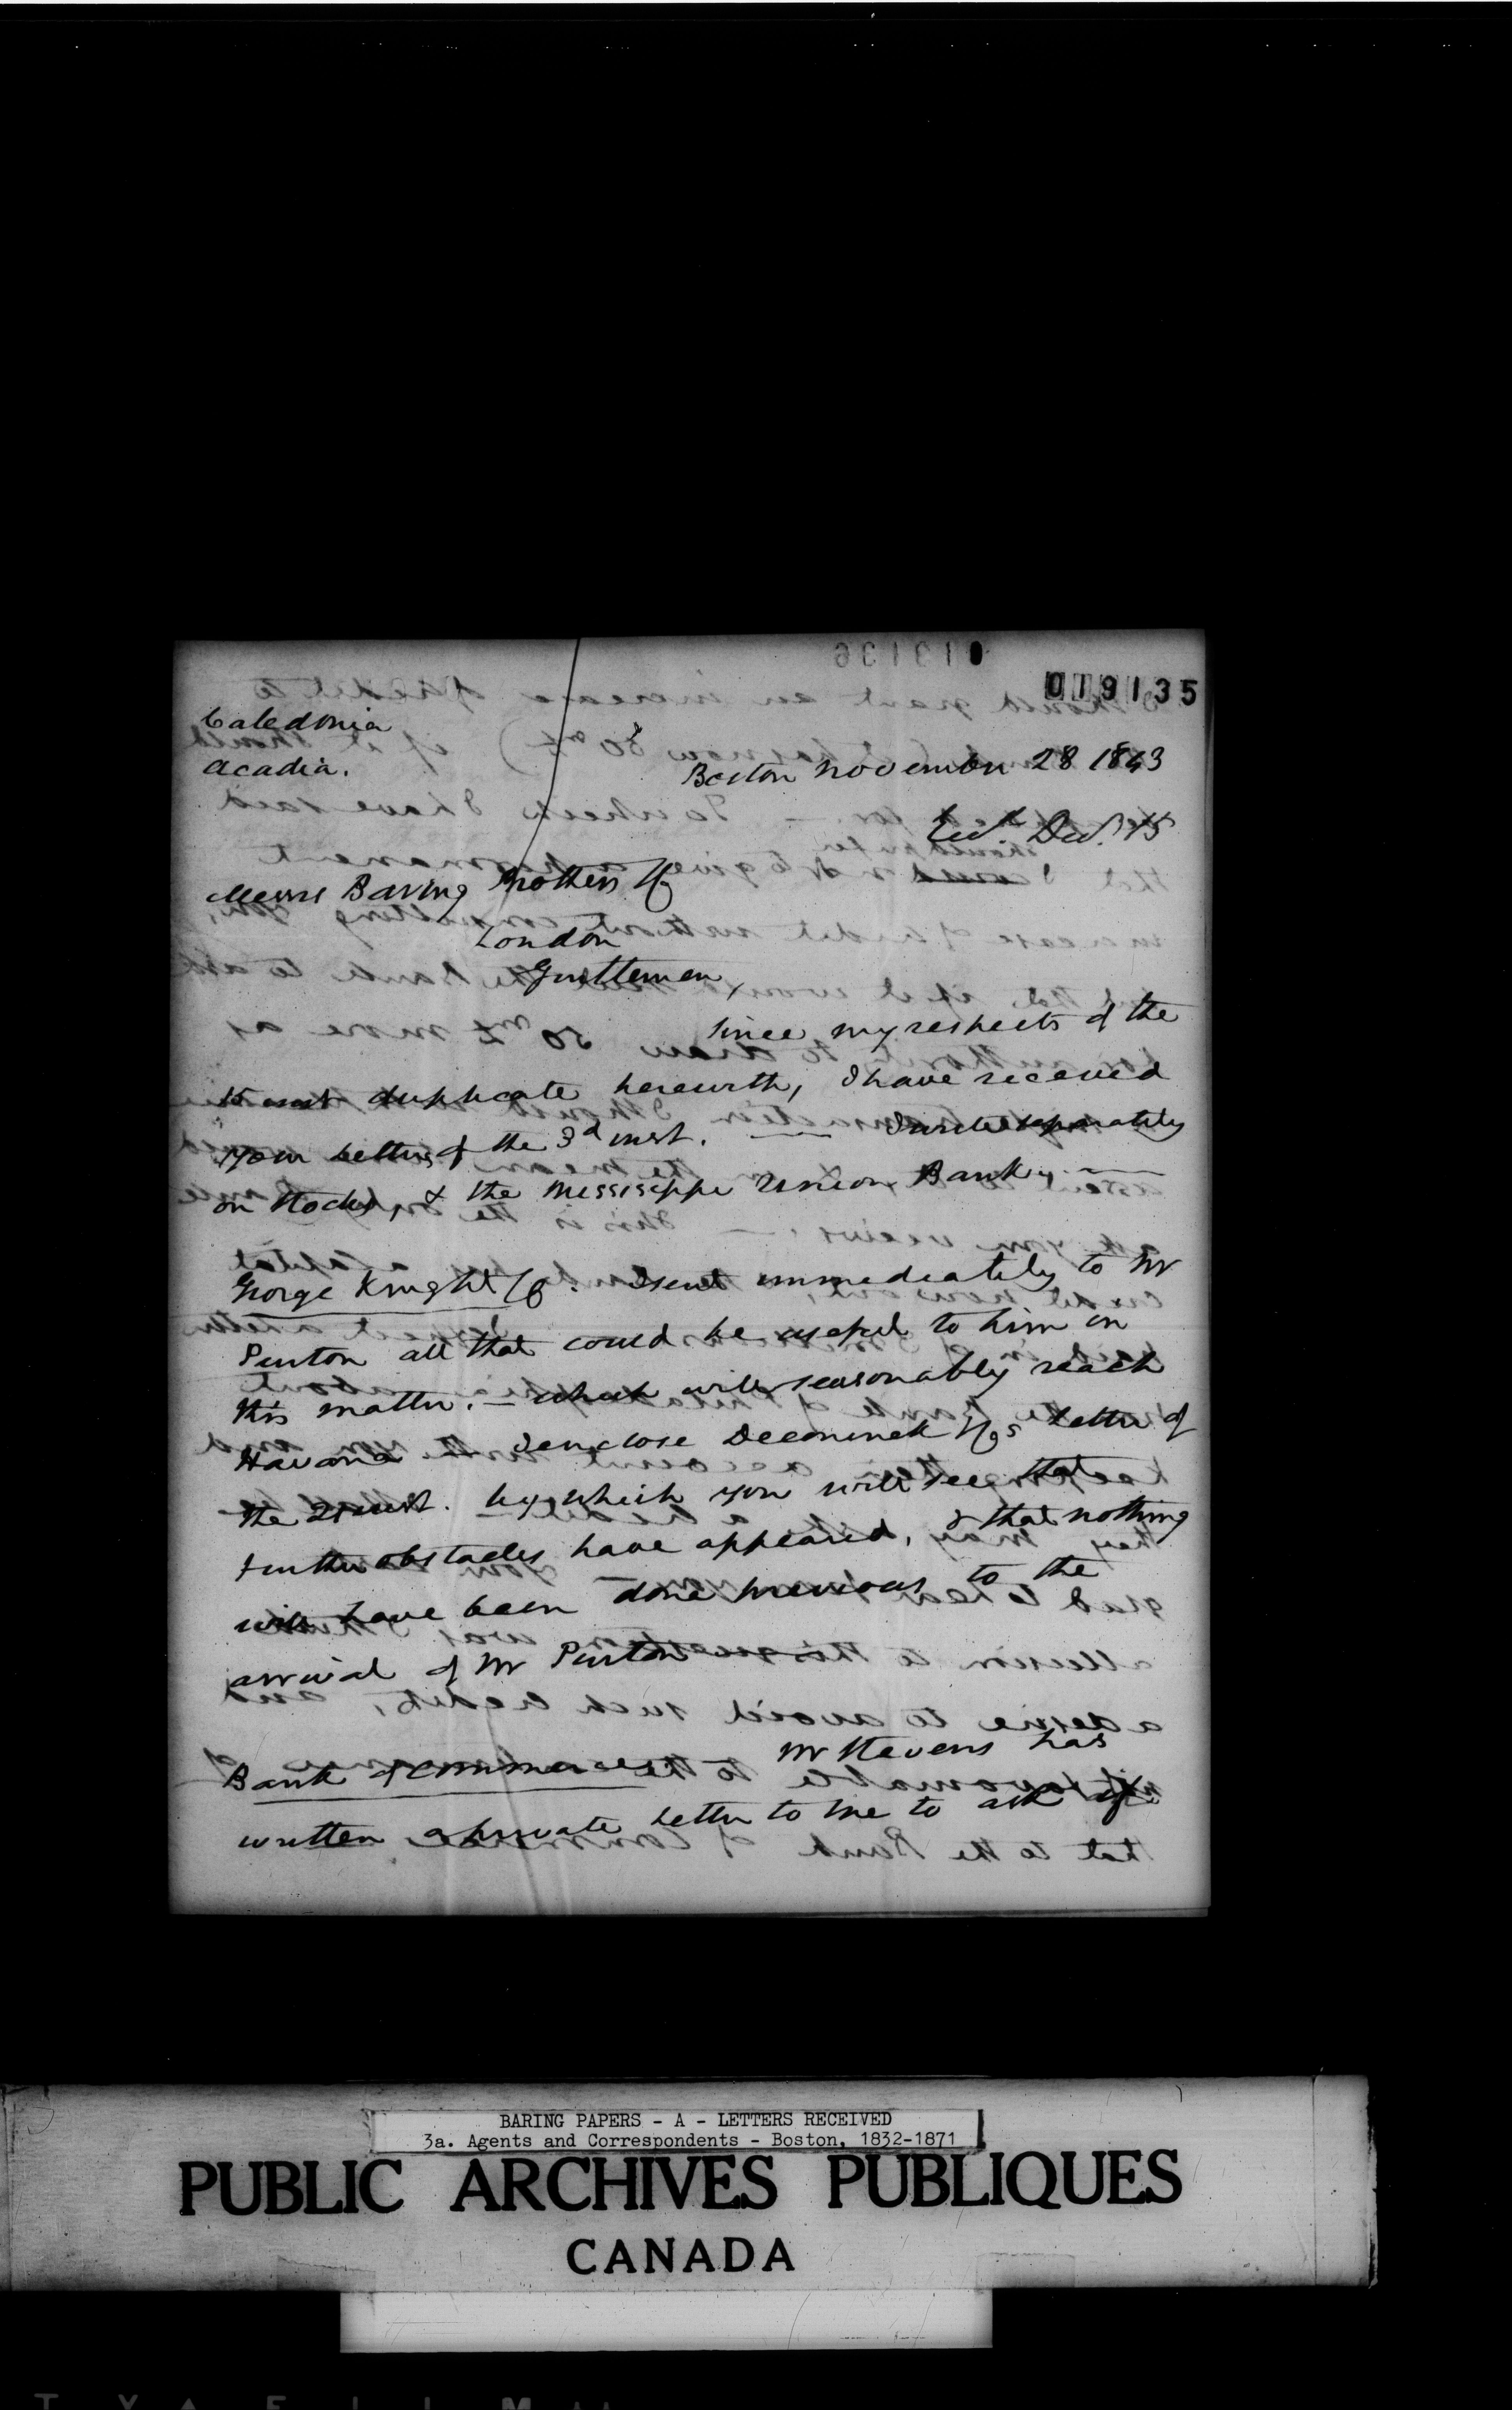 019135
Caledonia
Acadia.
Boston November 28 1843
Recd. Dec. 15
Messrs Baring Brothers & Co
London
Gentlemen,
Since my respects of the
15 inst duplicate herewith, I have received
your letters of the 3d inst. — I write separately
on Stocks, & the Mississippi Union Bank. —
George Knight & Co. I sent immediately to Mr
Purton all that could be useful to him in
this matter. — which will seasonably reach
Havana I enclose Deconinck & Co's letter of
the 21 inst. by which you will see that
further obstacles have appeared, & that nothing
will have been done previous to the
arrival of Mr Purton
Bank of Commerce Mr Stevens has
written a private letter to me to ask if
BARING PAPERS - A - LETTERS RECEIVED
3a. Agents and Correspondents - Boston, 1832-1871
PUBLIC ARCHIVES PUBLIQUES
CANADA